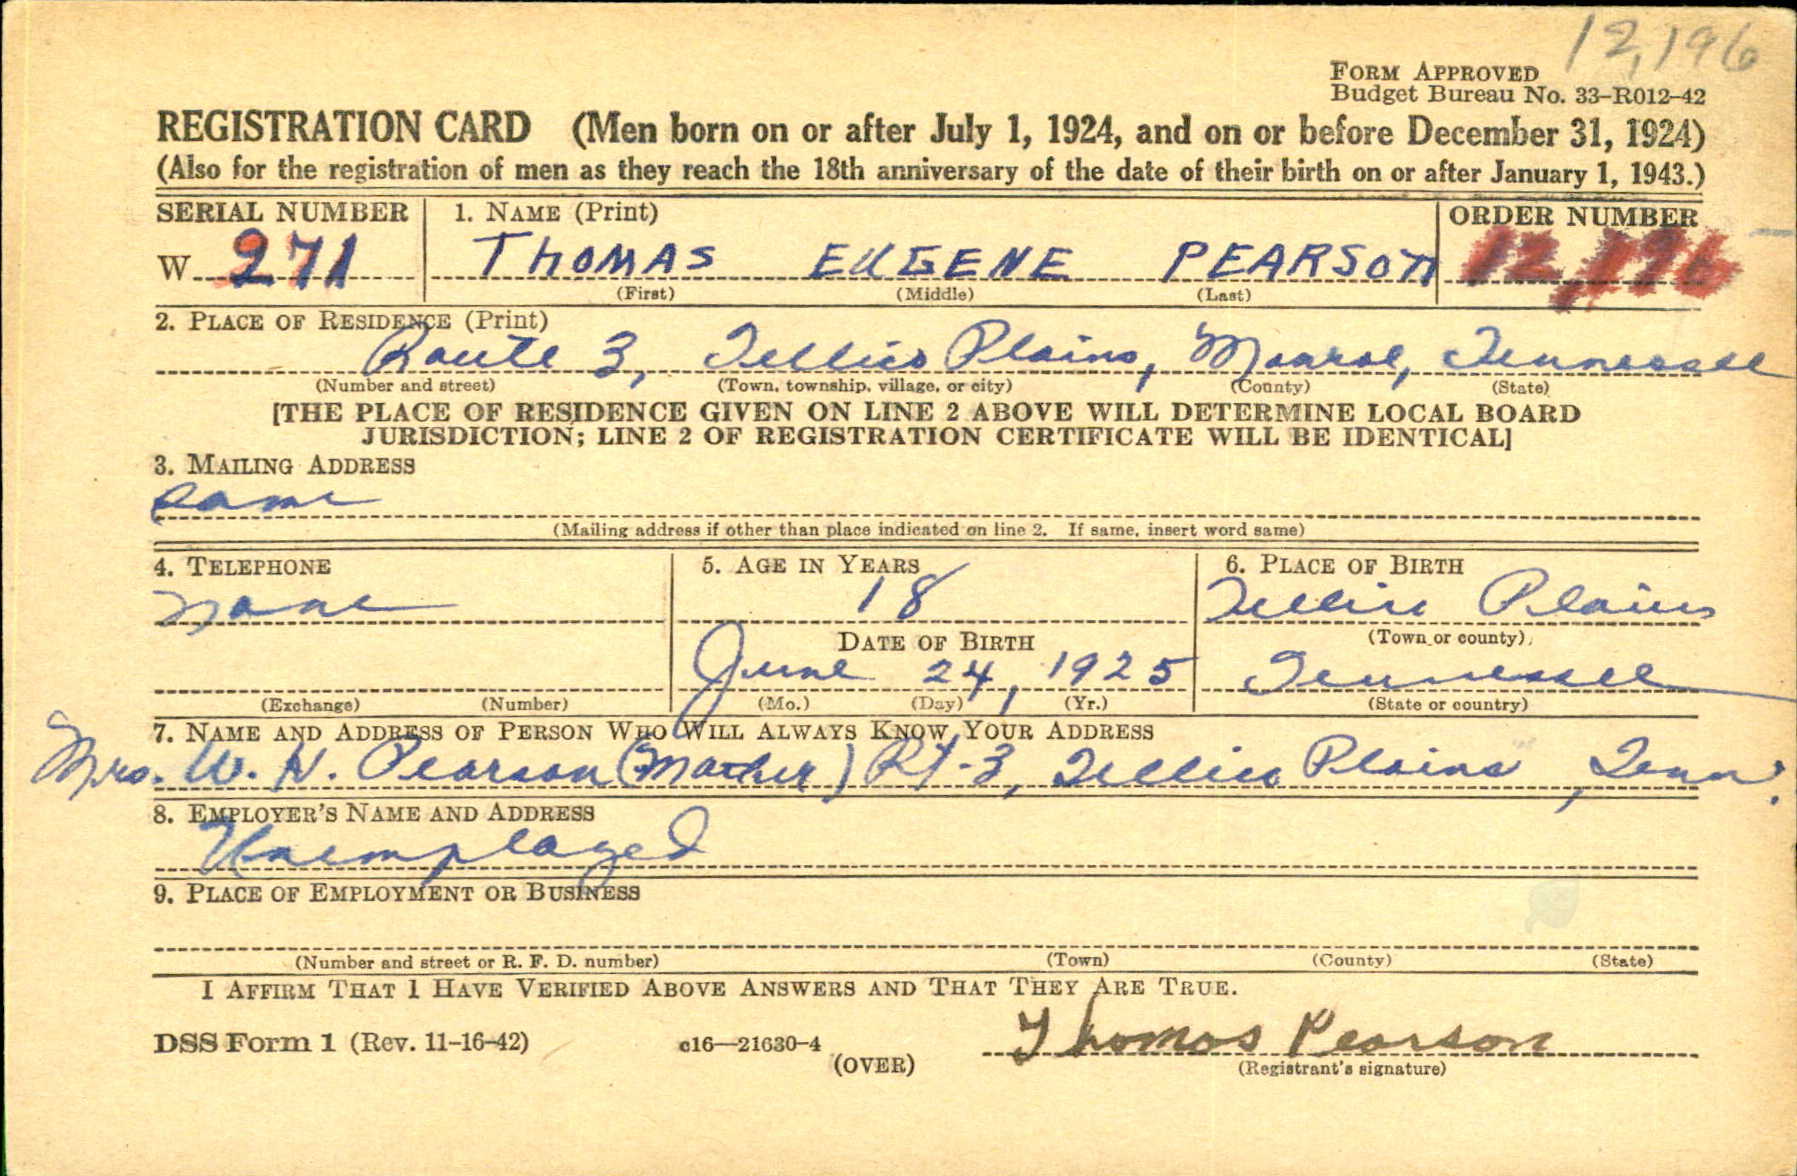 12,196
FORM APPROVED
Budget Bureau No. 33–R012–42
REGISTRATION CARD (Men born on or after July 1, 1924, and on or before December 31, 1924)
(Also for the registration of men as they reach the 18th anniversary of the date of their birth on or after January 1, 1943.)
SERIAL NUMBER 1. NAME (Print) ORDER NUMBER
W 271 THOMAS EUGENE PEARSON 12,196
(First) (Middle) (Last)
2. PLACE OF RESIDENCE (Print)
Route 3, Tellico Plains, Monroe, Tennessee
(Number and street) (Town, township, village, or city) (County) (State)
[THE PLACE OF RESIDENCE GIVEN ON LINE 2 ABOVE WILL DETERMINE LOCAL BOARD
JURISDICTION; LINE 2 OF REGISTRATION CERTIFICATE WILL BE IDENTICAL]
3. MAILING ADDRESS
Same
(Mailing address if other than place indicated on line 2. If same, insert word same)
4. TELEPHONE 5. AGE IN YEARS 6. PLACE OF BIRTH
None 18 Tellico Plains
DATE OF BIRTH (Town or county)
June 24, 1925 Tennessee
(Exchange) (Number) (Mo.) (Day) (Yr.) (State or country)
7. NAME AND ADDRESS OF PERSON WHO WILL ALWAYS KNOW YOUR ADDRESS
Mrs. W. H. Pearson (Mother) Rt-3, Tellico Plains, Tenn.
8. EMPLOYER'S NAME AND ADDRESS
Unemployed
9. PLACE OF EMPLOYMENT OR BUSINESS
(Number and street or R. F. D. number) (Town) (County) (State)
I AFFIRM THAT I HAVE VERIFIED ABOVE ANSWERS AND THAT THEY ARE TRUE.
DSS Form 1 (Rev. 11-16-42) c16—21630-4 Thomas Pearson
(OVER) (Registrant's signature)